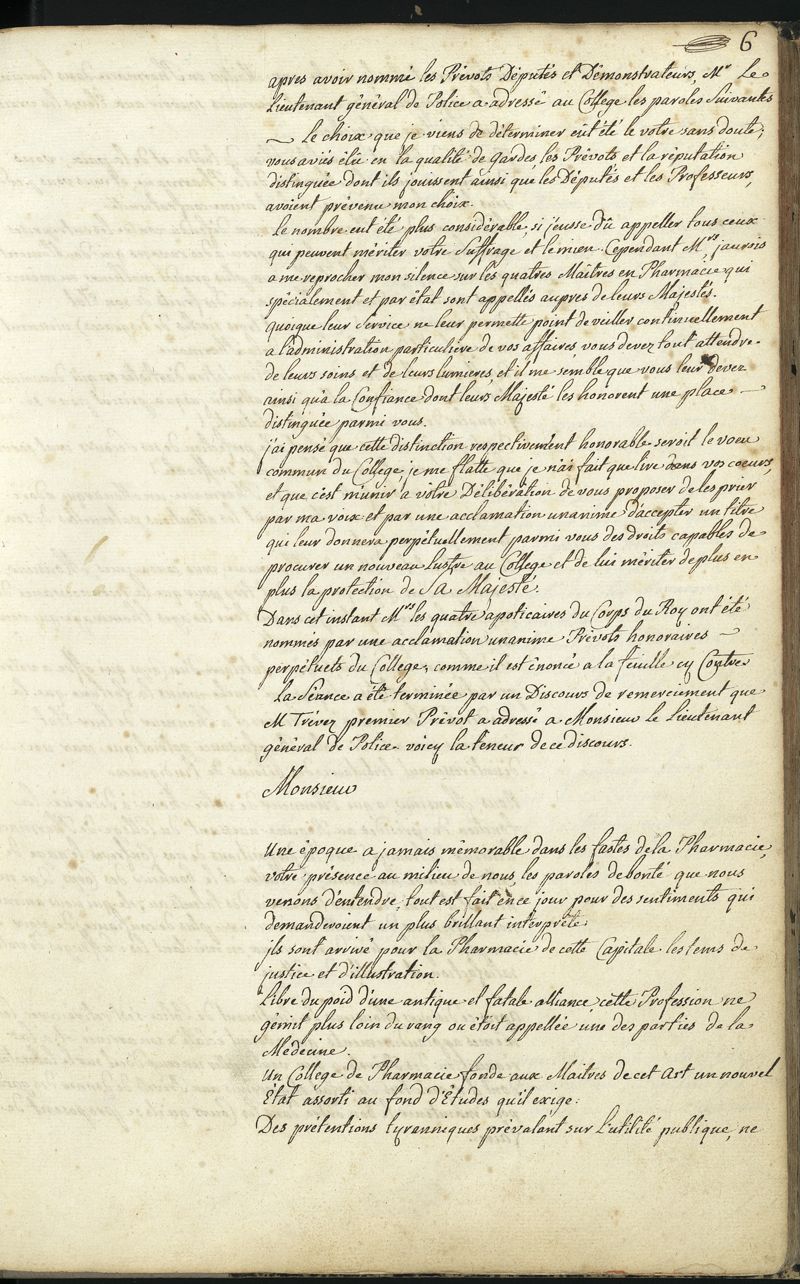 6
apres avoir nommé les Prévots Députés et Démonstrateurs, Mr Le
Lieutenant général de Police a adressé au College les paroles Suivantes
— Le choix que je viens de déterminer eût été le votre sans doute;
vous aviés élû en la qualité de Gardes les Prévots et la réputation
distinguée dont ils jouissent ainsi que les Députés et les Professeurs,
avoient prévenu mon choix.
Le nombre eut été plus considérable, si j'eusse dû appeller tous ceux
qui peuvent mériter votre Suffrage et le mien. Cependant Mrs j'aurois
a me reprocher mon silence sur les quatres Maîtres en Pharmacie qui
spécialement et par état sont appellés aupres de leurs Majestés.
quoique leur Service ne leur permette point de veiller continuellement
a l'administration particuliere de vos affaires, vous devez tout attendre
de leurs soins et de leurs lumieres, et il me semble que vous leur devez
ainsi qu'à la Confiance dont leurs Majesté les honorent une place —
distinguée parmi vous.
j'ai pensé que cette distinction respectivement honorable seroit le voeu
commun du College, je me flatte que je n'ai fait que lire dans vos coeurs,
et que c'est m'unir a vôtre Délibération de vous proposer de les prier
par ma voix et par une acclamation unanime d'accepter un titre
qui leur donnera perpétuellement parmi vous des droits capables de
procurer un nouveau lustre au College et de lui mériter de plus en
plus la protection de Sa Majesté.
Dans cet instant Mrs les quatre apoticaires du Corps du Roy ont été
nommés par une acclamation unanime Prévots honoraires —
perpétuels du College, comme il est énoncé a la feuille cy Contre
La Séance a été terminée par un Discours de remerciement que
M Trévez premier Prévot a adressé a Monsieur le Lieutenant
général de Police. voicy la teneur de ce discours.
Monsieur
Une époque a jamais mémorable dans les fastes de la Pharmacie,
votre présence au milieu de nous, les paroles de bonté que nous
venons d'entendre, tout est fait en ce jour pour des sentiments qui
demanderoient un plus brillant interprète.
jls sont arrivé pour la Pharmacie de cette Capitale les tems de
justice et d'illustration.
Libre du poid d'une antique et fatale alliance, cette Profession ne
gémit plus loin du rang ou étoit appellée une des parties de la
Médecine.
Un College de Pharmacie fonde aux Maîtres de cet art un nouvel
Etat assorti au fond d'Etudes qu'il exige:
Des prétentions tyranniques prévalant sur l'utilité publique, ne